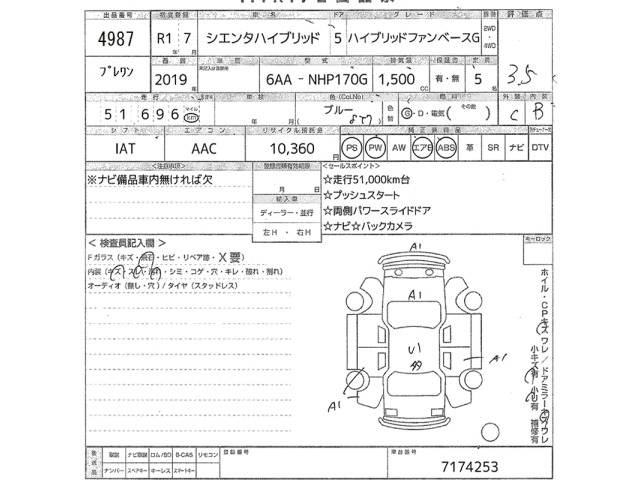 出品番号 初度登録 車名 ドア グレード 評価点
4987 R1 7 シエンタハイブリッド 5 ハイブリッドファンベースG 2WD・4WD
ブレワン 2019 6AA - NHP170G 1,500 CC 有・無 5 3.5
走行 車検 色(Col.No) 外装 内装
51696 マイル km 年 月 ブルー 色替 G・D・電気( その他 ) C B
シフト エアコン リサイクル預託金 純正装備品
IAT AAC 10,360 PS PW AW エアB ABS 革 SR ナビ DTV
<注意事項> 登録書類有効期限 <セールスポイント>
※ナビ備品車内無ければ欠 月 日 ☆走行51,000km台
輸入車 ☆プッシュスタート
ディーラー・並行 ☆両側パワースライドドア
左H ・ 右H ☆ナビ☆バックカメラ
<検査員記入欄> キーロック
Fガラス(キズ・飛石・ヒビ・リペア跡・X要)
内装(キズ・スレ・汚れ・シミ・コゲ・穴・キレ・破れ・割れ)
オーディオ(無し・穴)/タイヤ(スタッドレス)
A1
A1
U1
A1
A1
ホイル・CPキズ ワレ/ドアミラーキズワレ
小キズ有 小凹有 補修有
後送品 取説 ナビ取説 ロム/SD B-CAS リモコン 登録番号 車台番号
ナンバー スペアキー キーレス スマートキー 7174253